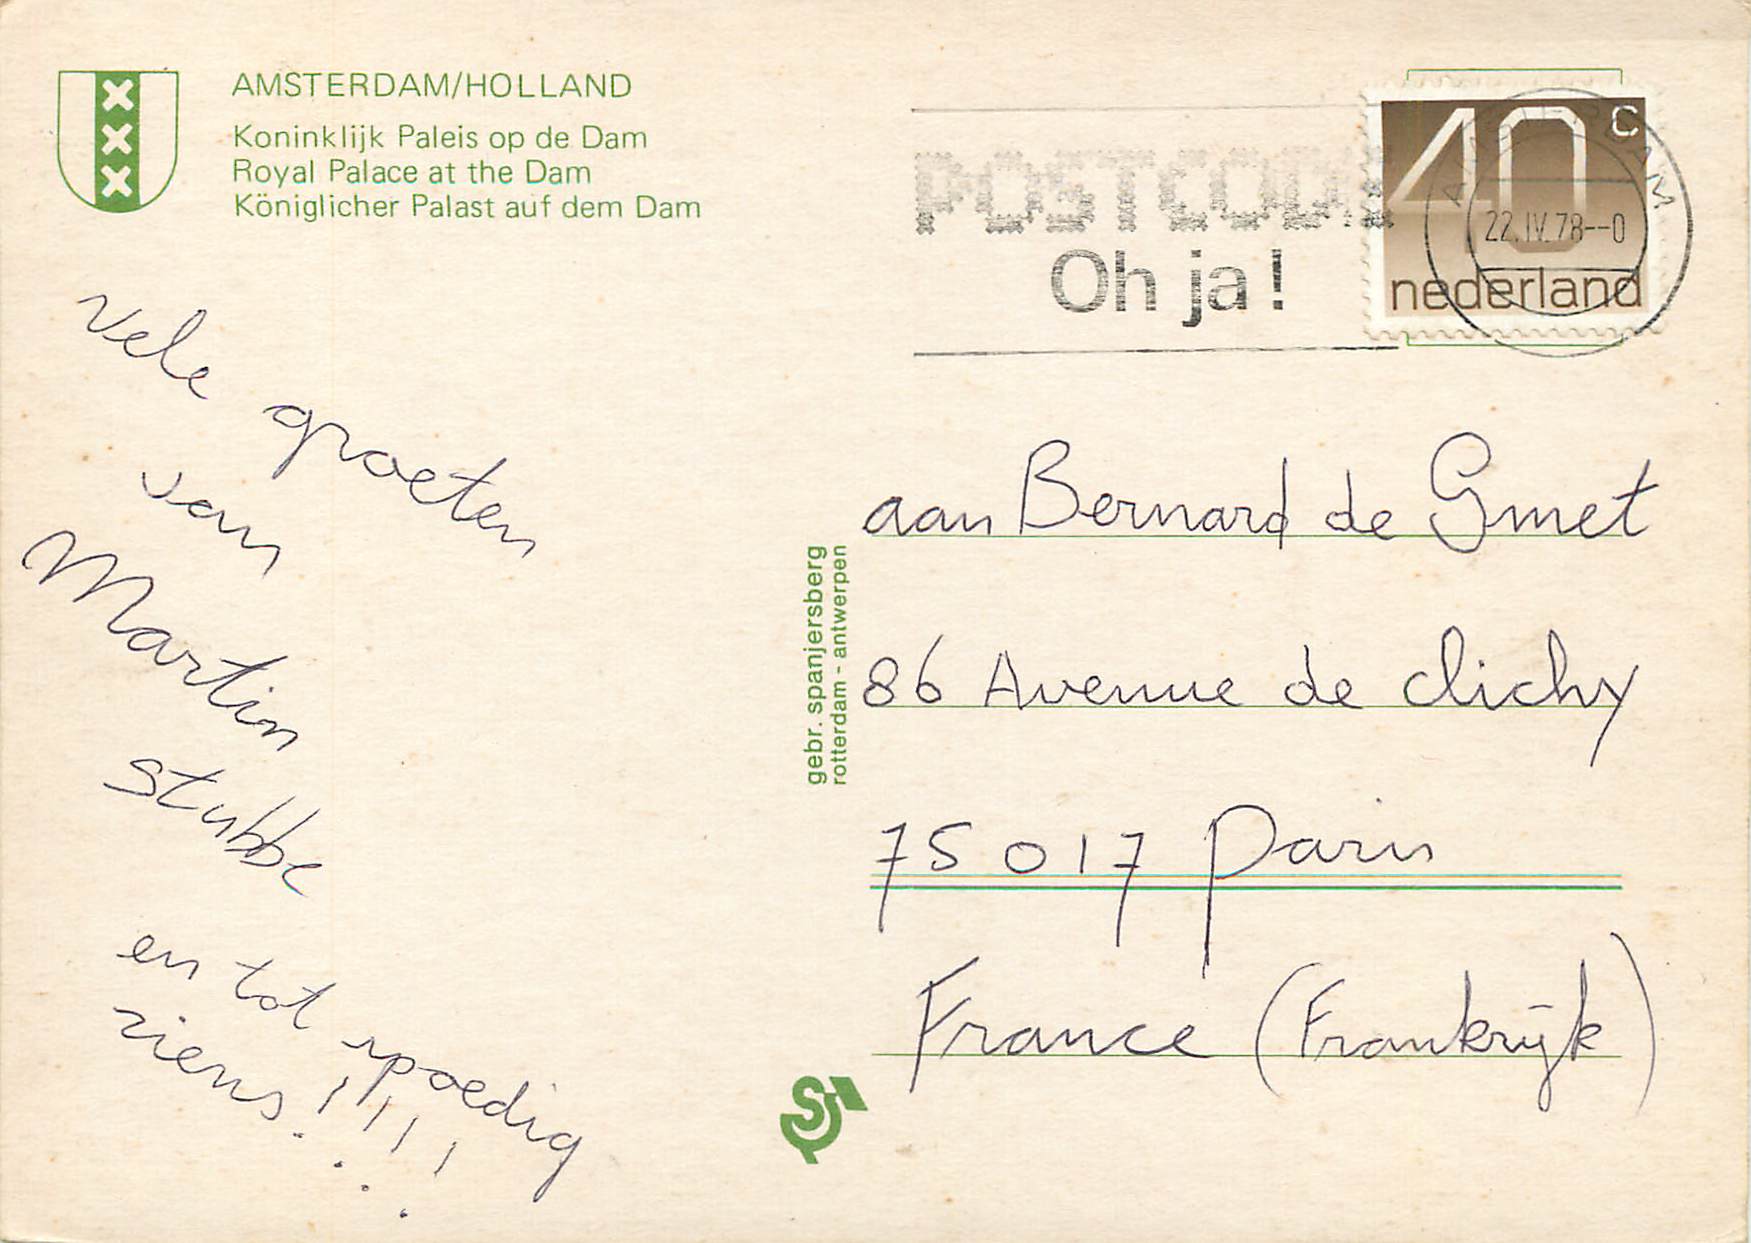 AMSTERDAM/HOLLAND
Koninklijk Paleis op de Dam
Royal Palace at the Dam
Königlicher Palast auf dem Dam
POSTCODE
Oh ja!
40 c
nederland
AMSTERDAM
22.IV.78--0
vele groeten
van
Martin
stubbe
en tot spoedig
ziens!!!!
gebr. spanjersberg
rotterdam - antwerpen
aan Bernard de Smet
86 Avenue de clichy
75017 Paris
France (Frankrijk)